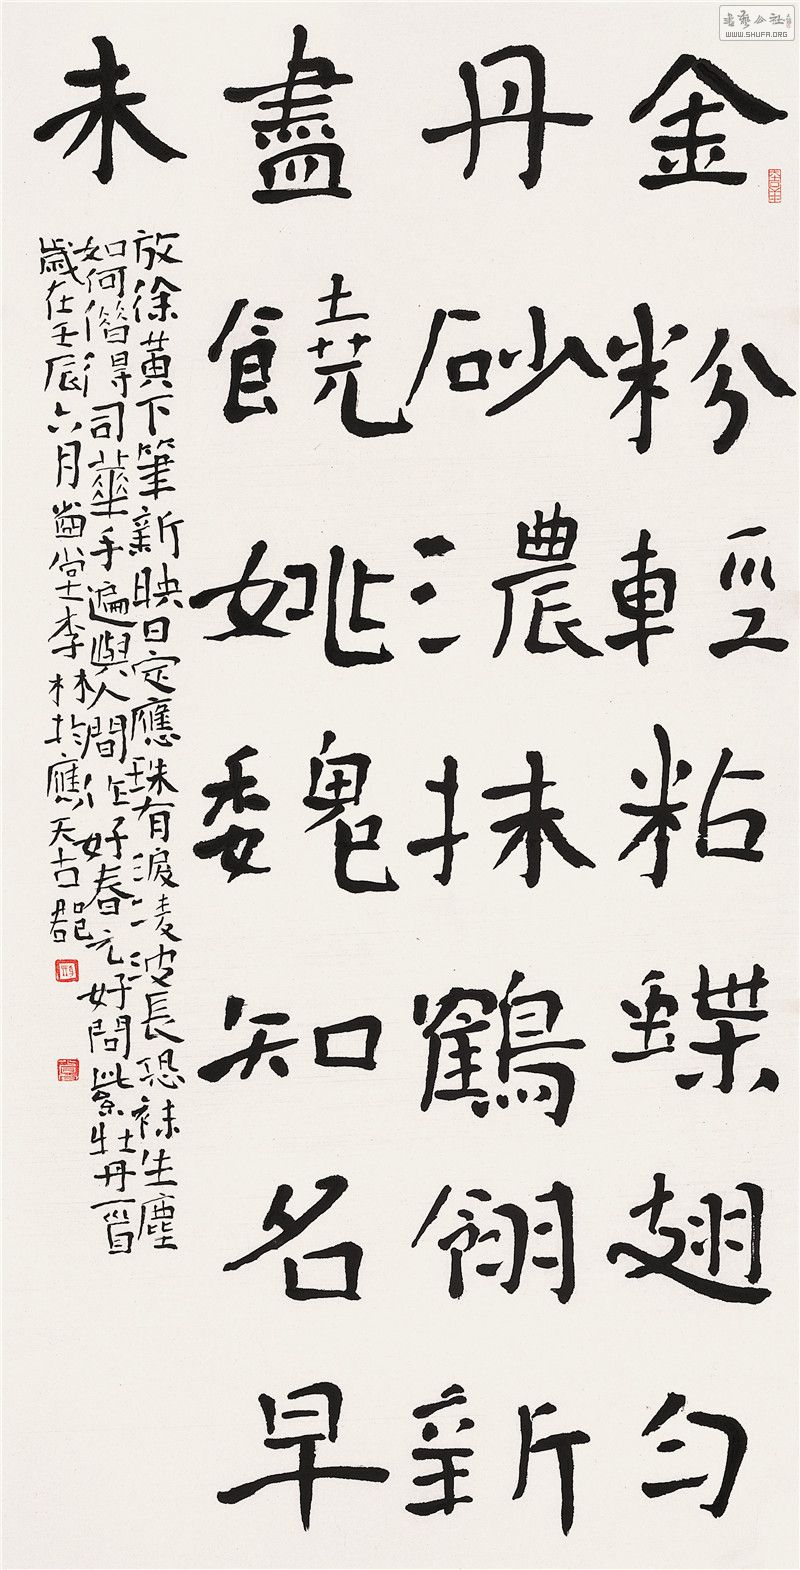 金粉輕粘蝶翅勻
丹砂濃抹鶴翎新
盡饒姚魏知名早
未
放徐黃下筆新映日定應珠有淚淩波長恐襪生塵
如何借得司華手遍與人間作好春元好問紫牡丹一首
歲在壬辰六月齒堂李林於應天古都
書藝公社
WWW.SHUFA.ORG